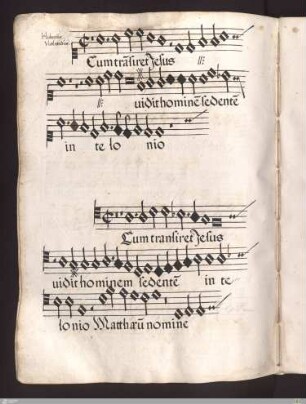 Hubertus
Waelrandus
Cum trāsiret Jesus
uidit hominē sedentē
in te lo nio
Cum transiret Jesus
uidit hominem sedentē in te
lonio Matthæū nomine